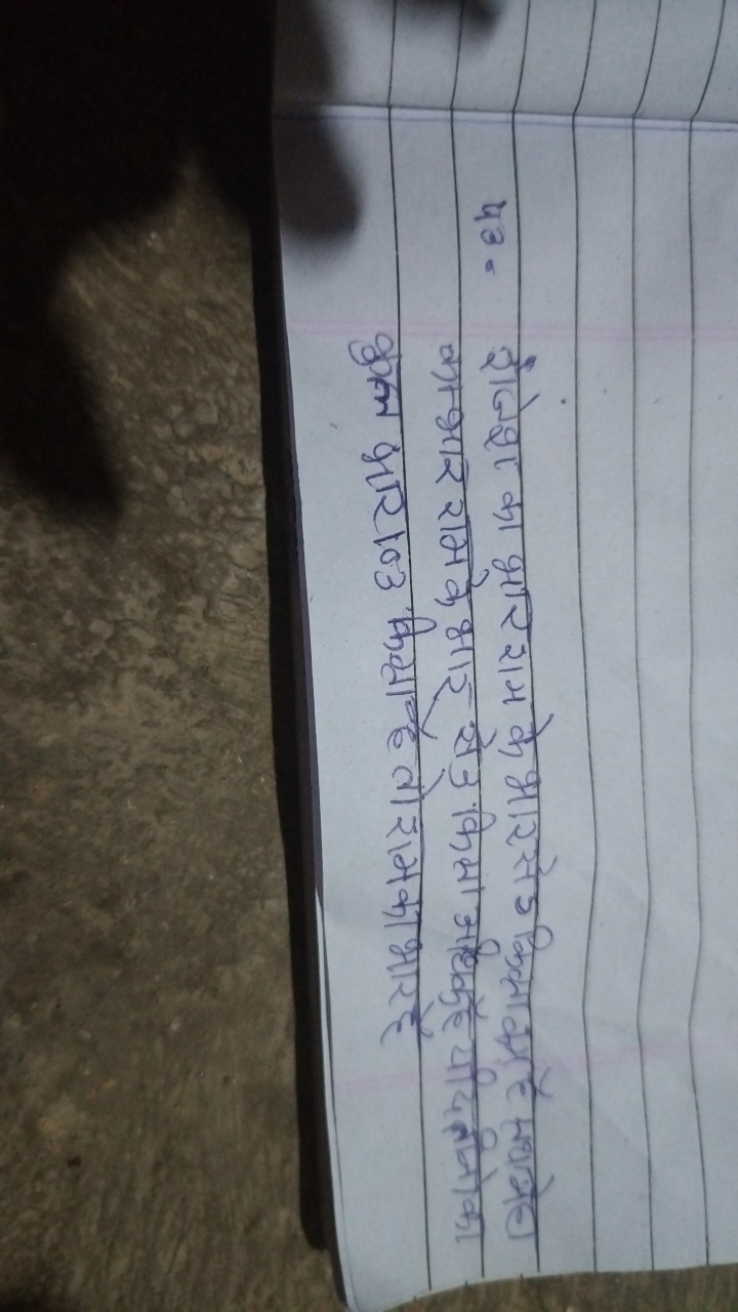 प्र3. शैलेन्द्रा का भार राम के भार से 5 किग्रा कम है तथा मेहा
का भार राम के भार से 3 किग्रा अधिक है यदि तीनो का
कुल भार 103 किग्रा है तो राम का भार है